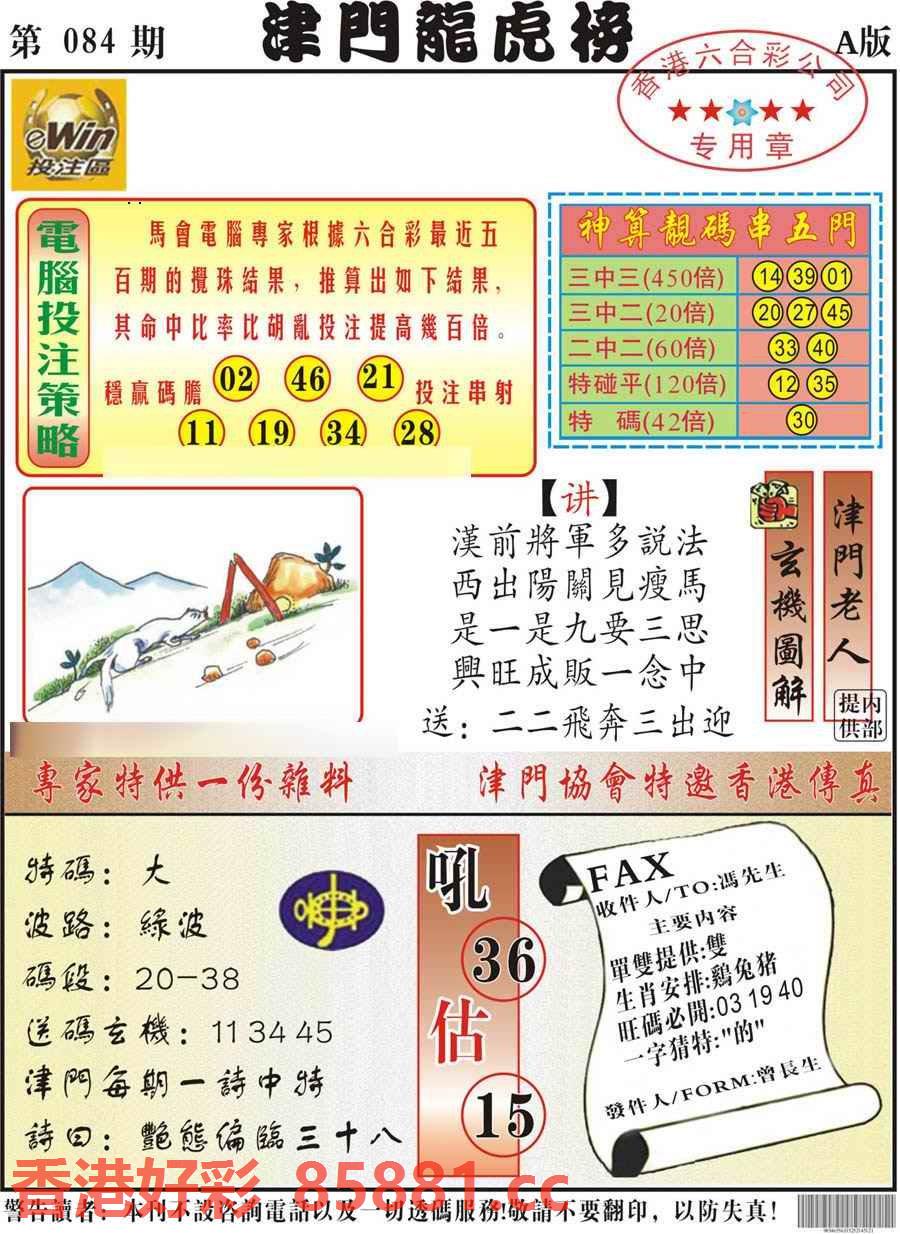 第 084 期
津門龍虎榜
A版
香港六合彩公司
专用章
eWin
投注區
電腦投注策略
馬會電腦專家根據六合彩最近五
百期的攪珠結果，推算出如下結果，
其命中比率比胡亂投注提高幾百倍。
穩贏碼膽 02 46 21 投注串射
11 19 34 28
神算靚碼串五門
三中三(450倍) 14 39 01
三中二(20倍) 20 27 45
二中二(60倍) 33 40
特碰平(120倍) 12 35
特 碼(42倍) 30
【讲】
漢前將軍多説法
西出陽關見瘦馬
是一是九要三思
興旺成販一念中
送：二二飛奔三出迎
玄機圖解
津門老人
内部提供
專家特供一份雜料
津門協會特邀香港傳真
特碼：大
波路：綠波
碼段：20-38
送碼玄機：11 34 45
津門每期一詩中特
詩曰：艷態偏臨三十八
吼
36
估
15
FAX
收件人/TO:馮先生
主要内容
單雙提供:雙
生肖安排:鷄兔猪
旺碼必開:03 19 40
一字猜特:"的"
發件人/FORM:曾長生
香港好彩 85881.cc
警告讀者：本刊不設咨詢電話以及一切透碼服務!敬請不要翻印，以防失真!